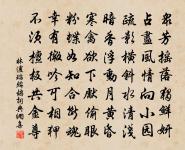 芳搖落獨鮮妍
占盡風情向小園
疏影橫斜水清淺
暗香浮動月黃昏
寒禽欲下偷眼
粉蝶如知合斷魂
幸有微吟可相狎
不須檀板共金尊
林逋